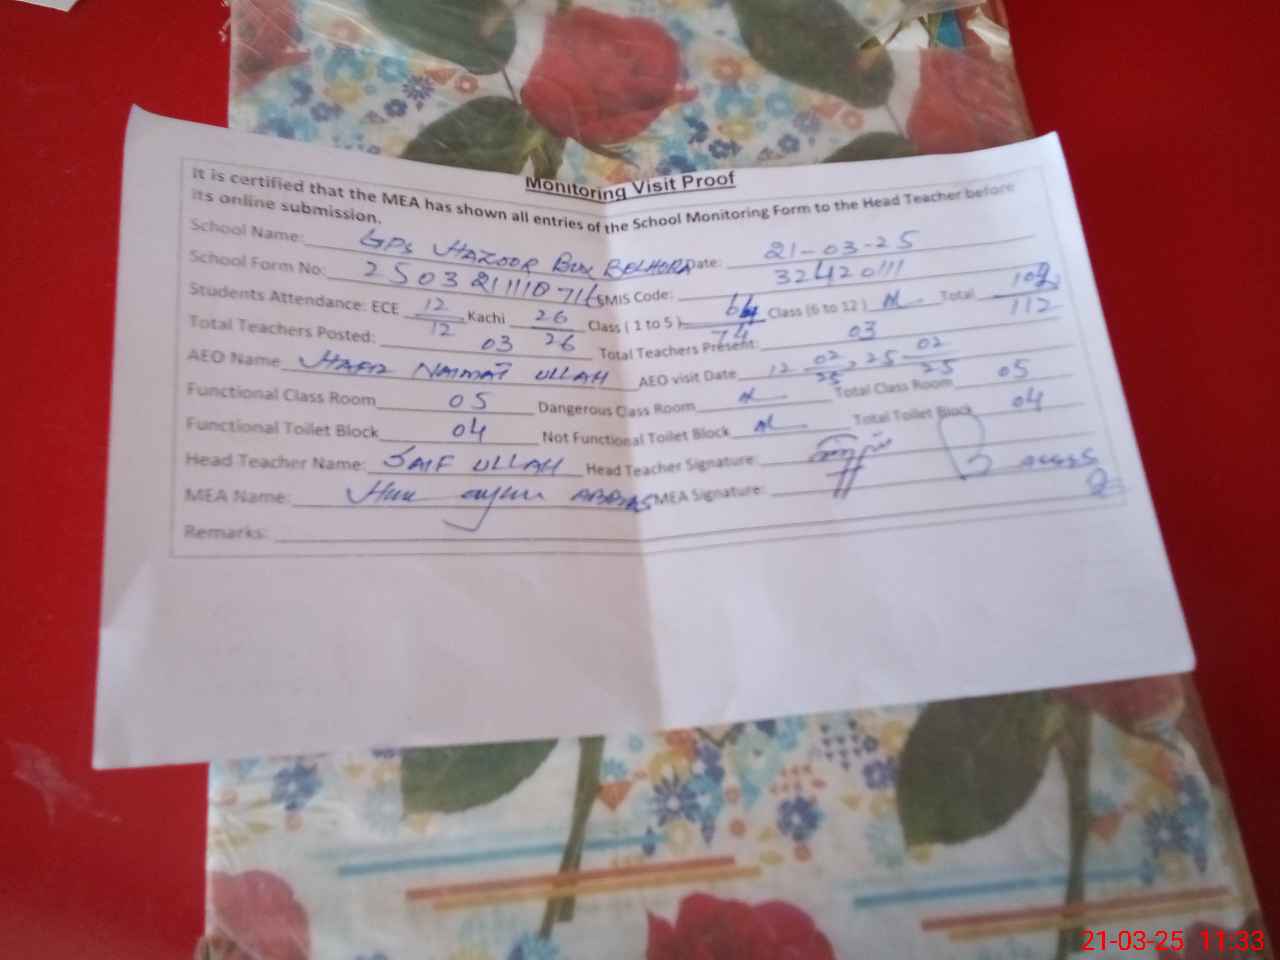 Monitoring Visit Proof
It is certified that the MEA has shown all entries of the School Monitoring Form to the Head Teacher before
its online submission.
School Name: GPS HAZOOR BUX BELHORA Date: 21-03-25
School Form No: 2503211110711 SMIS Code: 32420111
Students Attendance: ECE 12/12 Kachi 26/26 Class ( 1 to 5 ) 64/74 Class (6 to 12 ) Total 102/112
Total Teachers Posted: 03 Total Teachers Present: 03
AEO Name HAFIZ NAIMAT ULLAH AEO visit Date 12 02/25, 25 02/25
Functional Class Room 05 Dangerous Class Room Total Class Room 05
Functional Toilet Block 04 Not Functional Toilet Block Total Toilet Block 04
Head Teacher Name: SAIF ULLAH Head Teacher Signature:
MEA Name: ABBAS MEA Signature:
Remarks:
21-03-25 11:33